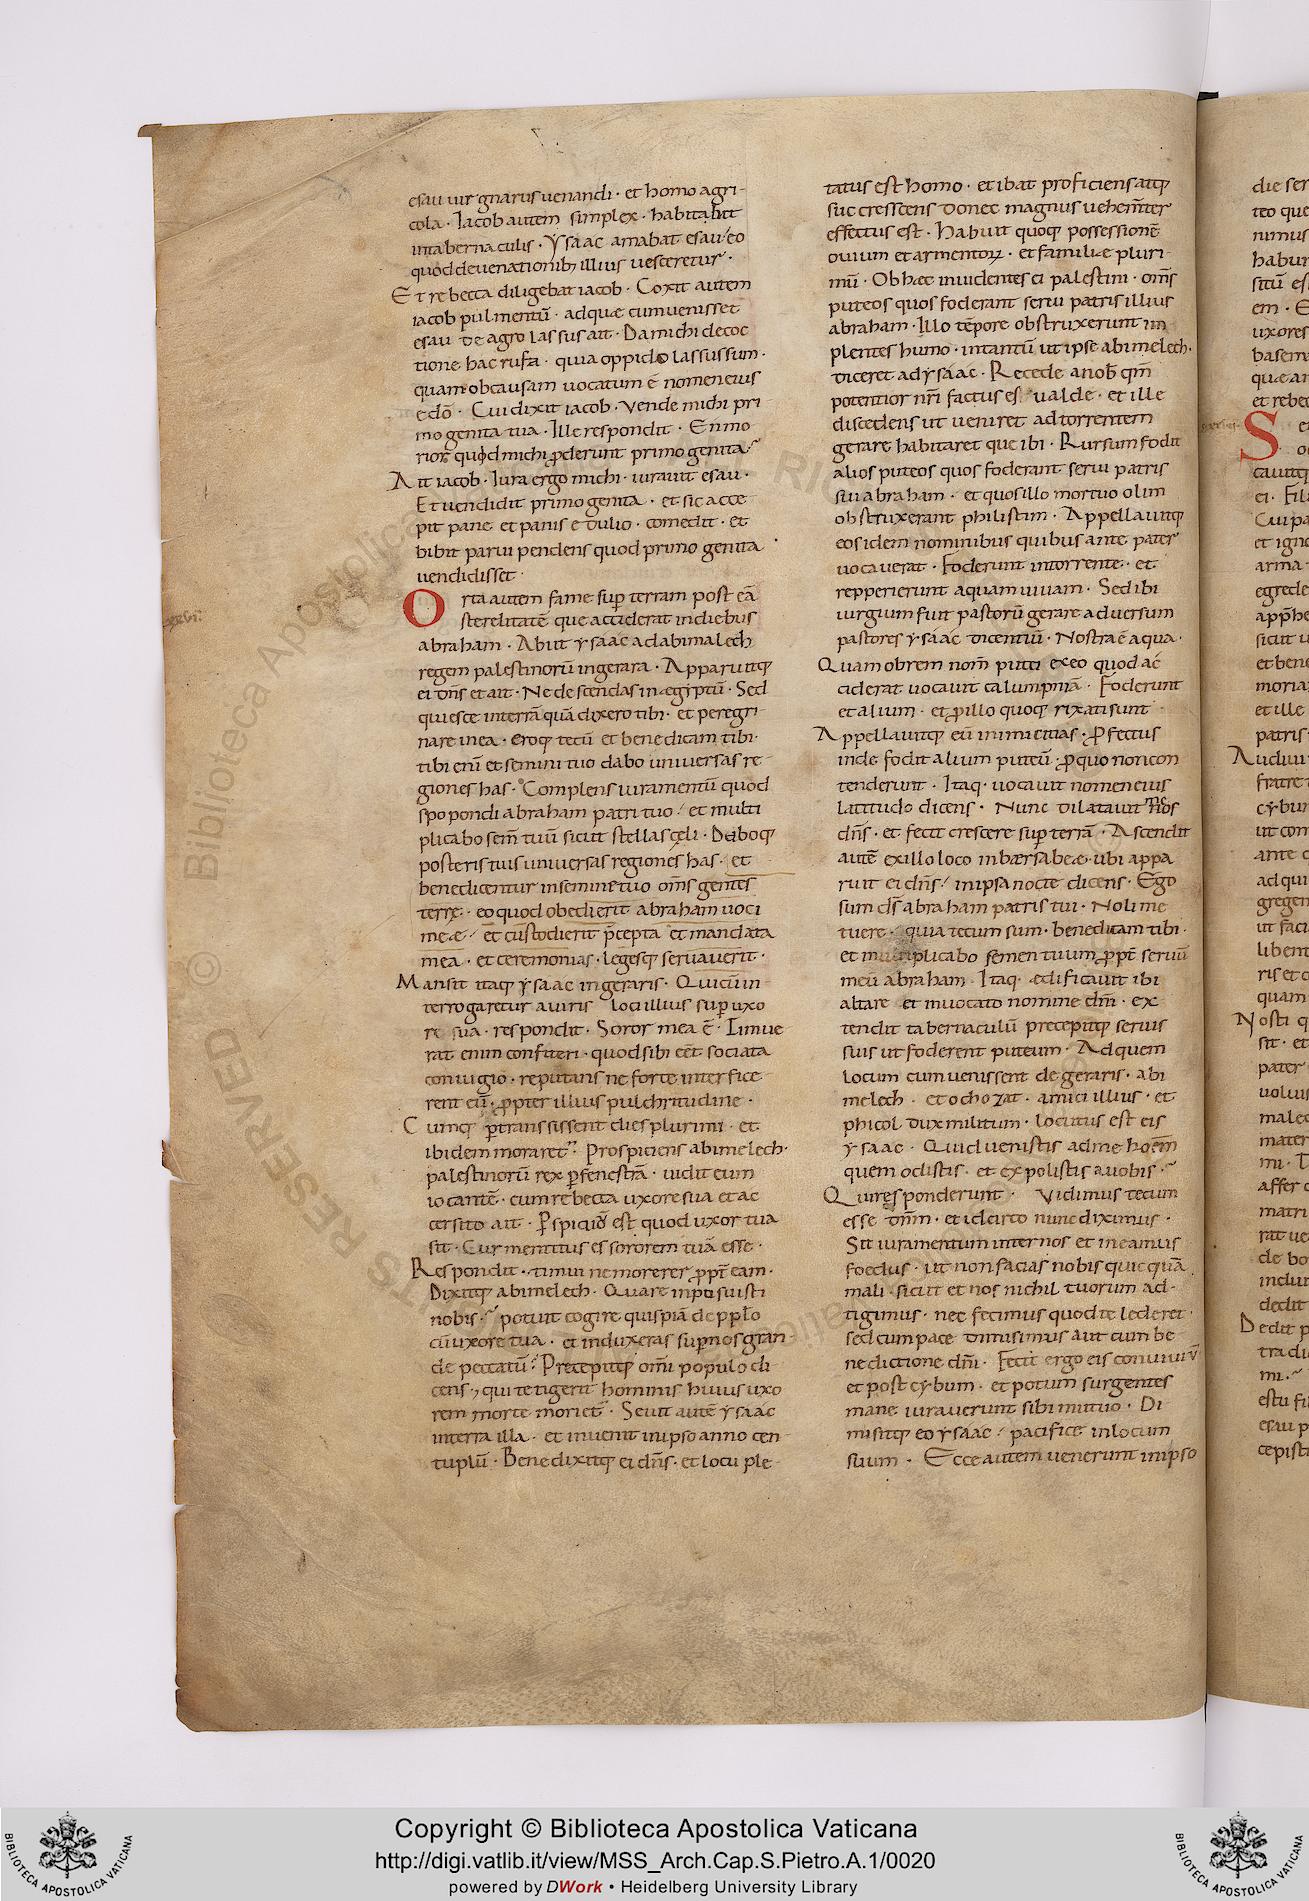 esau uir gnarus uenandi · et homo agri-
cola · Iacob autem simplex · habitabat
intabernaculis · ysaac amabat esau eo
quod deuenationib; illius uesceretur ·
Et rebecca diligebat iacob · Coxit autem
iacob pulmentū · adquæ cumuenisset
esau de agro lassus ait · Da michi decoc
tione hac rufa · quia oppido lassussum ·
quam obcausam uocatum ē nomeneius
edō · Cui dixit iacob · Vende michi pri
mogenita tua · Ille respondit · En mo
rior quid michi ꝓderunt primogenita ·
Ait iacob · Iura ergo michi · iurauit esau ·
Et uendidit primogenita · et sic acce
pit pane et panis edulio · comedit · et
bibit parui pendens quod primogenita
uendidisset ·
Orta autem fame sup terram post eā
sterelitatē que acciderat indiebus
abraham · Abiit ysaac adabimalech
regem palestinorū ingerara · Apparuitq;
ei dn̄s et ait · Ne descendas inægyptū · Sed
quiesce interrā quā dixero tibi · et peregri
nare inea · eroq; tecū et benedicam tibi ·
tibi enī et semini tuo dabo uniuersas re
giones has · Complens iuramentū quod
spopondi abraham patri tuo · et multi
plicabo sem̄ tuū sicut stellas cęli · Daboq;
posteris tuis uniuersas regiones has · et
benedicentur insemine tuo om̄s gentes
terræ · eo quod obedierit abraham uoci
meæ · et custodierit p̄cepta et mandata
mea · et ceremonias · legesq; seruauerit ·
Mansit itaq; ysaac ingeraris · Qui cū in
terrogaretur auiris loci illius sup uxo
re sua · respondit · Soror mea ē · Timue
rat enim confiteri · quod sibi eēt sociata
coniugio · reputans ne forte interfice
rent eū · ꝓpter illius pulchritudine ·
Cumq; ptransissent dies plurimi · et
ibidem moraret · Prospiciens abimelech ·
palestinorū rex pfenestrā · uidit eum
iocantē · cum rebecca uxore sua et ac
cersito ait · Pspicuū est quod uxor tua
sit · Cur mentitus es sororem tuā esse ·
Respondit · timui ne morerer ꝓpt̄ eam ·
Dixitq; abimelech · Quare inposuisti
nobis · potuit cogire quispiā de pplo
cū uxore tua · et induxeras sup nos gran
de peccatū · Precepitq; om̄i populo di
cens · qui tetigerit hominis huius uxo
rem morte moriet · Seuit autē ysaac
interra illa · et inuenit inipso anno cen
tuplū · Benedixitq; ei dn̄s · et locuple
tatus est homo · et ibat proficiens atq;
succrescens donec magnus uehem̄ter
effectus est · Habuit quoq; possessionē
ouium et armentoꝝ · et familiæ pluri-
mū · Ob hæc inuidentes ei palestini · om̄s
puteos quos foderant serui patris illius
abraham · Illo tēpore obstruxerunt im
plentes humo · intantū ut ipse abimelech ·
diceret ad ysaac · Recede a nob̄ qm̄
potentior nr̄i factus es ualde · et ille
discedens ut ueniret ad torrentem
gerare habitaret que ibi · Rursum fodit
alios puteos quos foderant serui patris
sui abraham · et quos illo mortuo olim
obstruxerant philistim · Appellauitq;
eos idem nominibus quibus ante pater
uocauerat · Foderunt intorrente · et
repperierunt aquam uiuam · Sed ibi
iurgium fuit pastorū gerare aduersum
pastores ysaac dicentiū · Nostra ē aqua ·
Quam obrem nom̄ putei exeo quod ac
ciderat uocauit calumpniā · Foderunt
et alium · et ꝓ illo quoq; rixati sunt
Appellauitq; eū inimicitias · Profectus
inde fodit alium puteū · ꝓ quo non con
tenderunt · Itaq; uocauit nomeneius
latitudo dicens · Nunc dilatauit nos
dn̄s · et fecit crescere sup terrā · Ascendit
autē exillo loco inbersabeæ · ubi appa
ruit ei dn̄s · inipsa nocte dicens · Ego
sum ds̄ abraham patris tui · Noli me
tuere · quia tecum sum · benedicam tibi ·
et multiplicabo semen tuum ꝓpt̄ seruū
meū abraham · Itaq; ædificauit ibi
altare et inuocato nomine dn̄i · ex
tendit tabernaculū precepitq; seruis
suis ut foderent puteum · Ad quem
locum cum uenissent de geraris · abi
melech · et ochozat · amici illius · et
phicol dux militum · locutus est eis
ysaac · Quid uenistis ad me hoem
quem odistis · et expolistis auobis ·
Qui responderunt · Vidimus tecum
esse dnm̄ · et idcirco nunc diximus ·
Sit iuramentum inter nos et ineamus
foedus · ut non facias nobis quicquā
mali · sicut et nos nichil tuorum ad-
tigimus · nec fecimus quod te lederet ·
sed cum pace dimisimus aut cum be
nedictione dn̄i · Fecit ergo eis conuiuiū
et post cybum · et potum surgentes
mane iurauerunt sibi mutuo · Di
misitq; eo ysaac · pacifice inlocum
suum · Ecce autem uenerunt inipso
S
Copyright © Biblioteca Apostolica Vaticana
http://digi.vatlib.it/view/MSS_Arch.Cap.S.Pietro.A.1/0020
powered by DWork • Heidelberg University Library
BIBLIOTECA APOSTOLICA VATICANA
BIBLIOTECA APOSTOLICA VATICANA